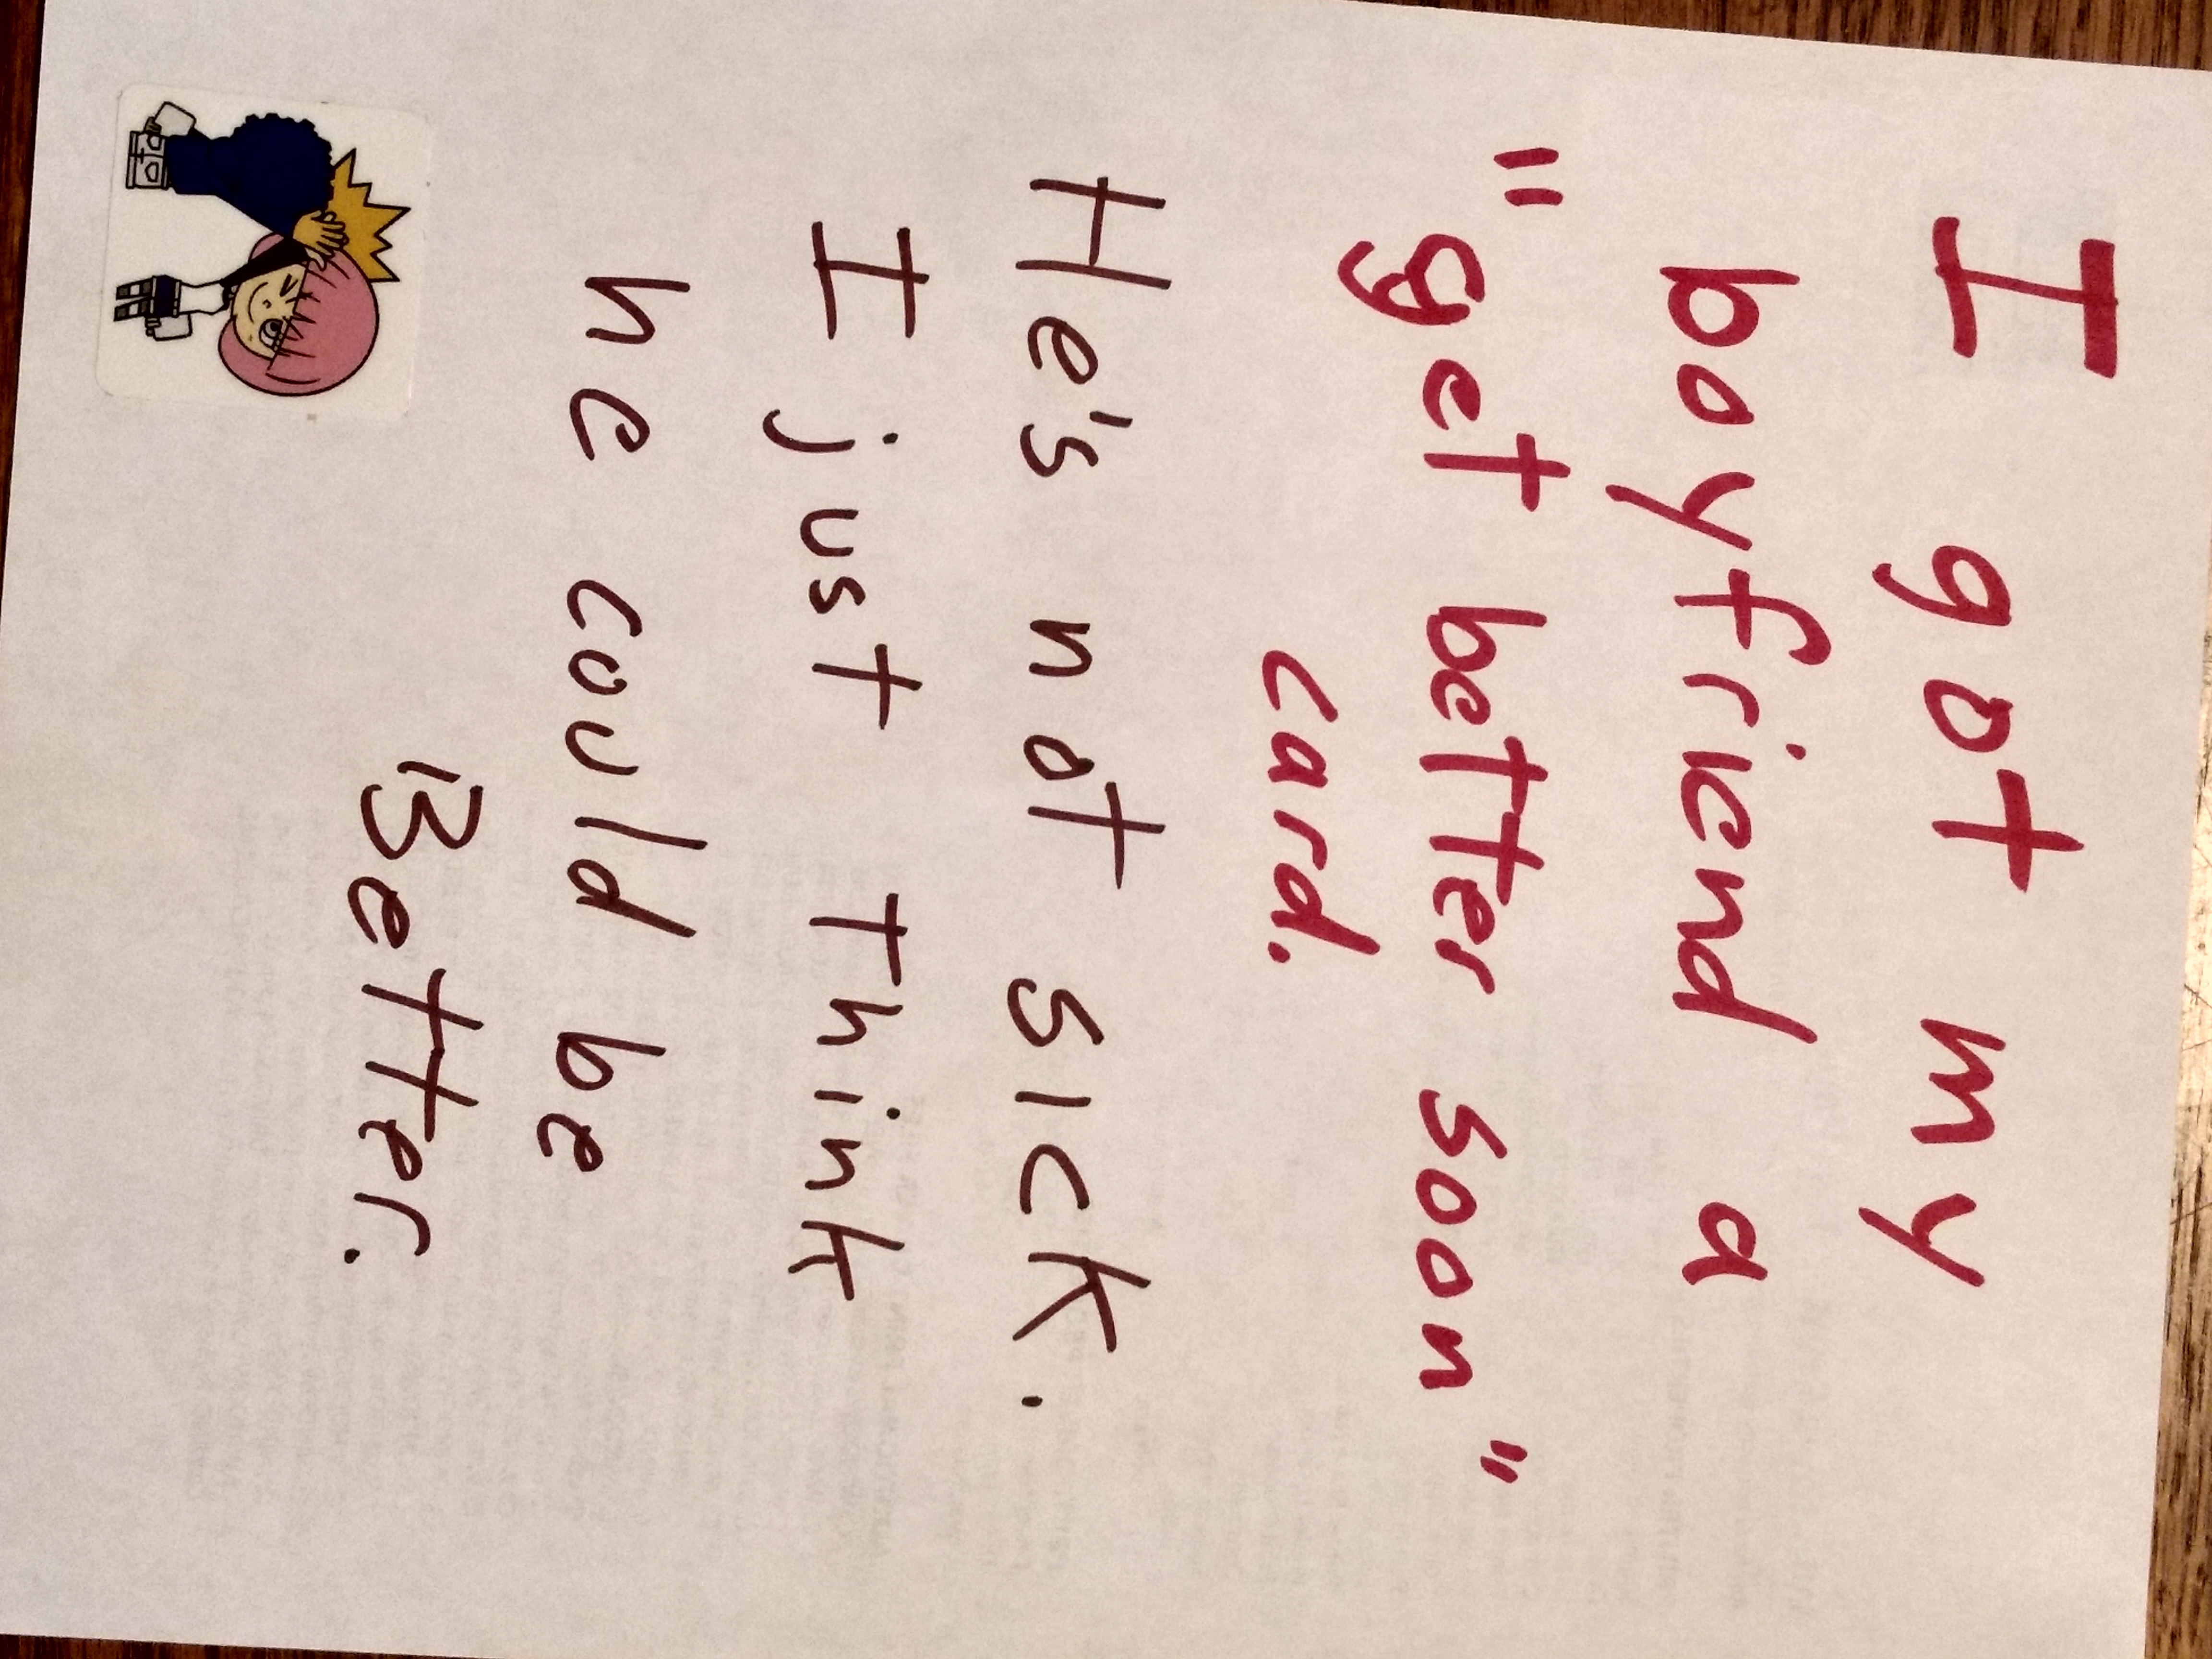 I got my
boyfriend a
"get better soon"
card.
He's not sick.
I just Think
he could be
Better.